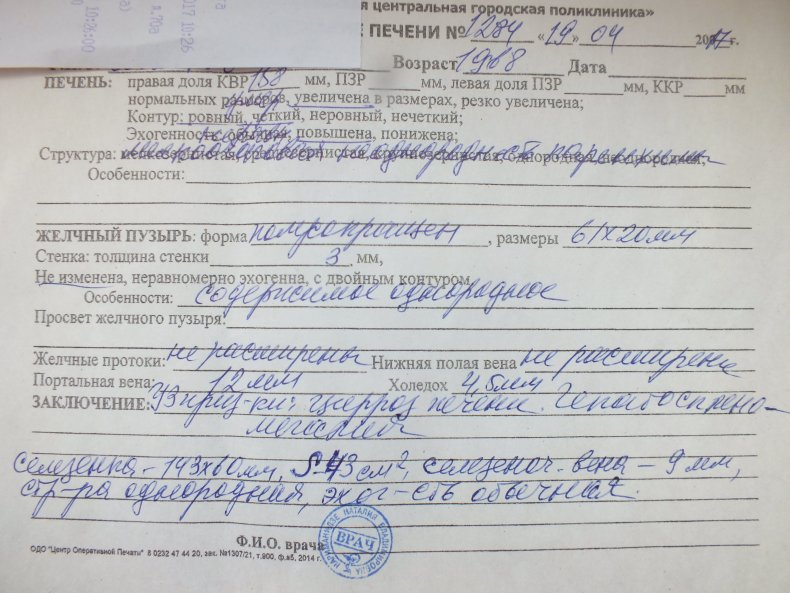 я центральная городская поликлиника»
Е ПЕЧЕНИ № 1284 «19» 04 2017 г.
2017 10:26
10:26:00
Возраст 1968 Дата
ПЕЧЕНЬ: правая доля КВР 158 мм, ПЗР мм, левая доля ПЗР мм, ККР мм
нормальных размеров, увеличена в размерах, резко увеличена;
Контур: ровный, четкий, неровный, нечеткий;
Эхогенность: обычная, повышена, понижена;
Структура: однородная, неоднородная;
Особенности:
ЖЕЛЧНЫЙ ПУЗЫРЬ: форма , размеры 61х20мм
Стенка: толщина стенки 3 мм,
Не изменена, неравномерно эхогенна, с двойным контуром
Особенности: содержимое однородное
Просвет желчного пузыря:
Желчные протоки: не расширены Нижняя полая вена не расширена
Портальная вена: 12 мм Холедох 4,5мм
ЗАКЛЮЧЕНИЕ: УЗ призн-ки: цирроз печени. Гепатосплено-
мегалии
селезенка - 143х60мм, S-43 см², селезеноч. вена - 9 мм,
стр-ра однородная, эхог-сть обычная.
Ф.И.О. врача
ВРАЧ
ОДО "Центр Оперативной Печати" 8 0232 47 44 20, зак. №1307/21, т.900, ф.а5, 2014 г.